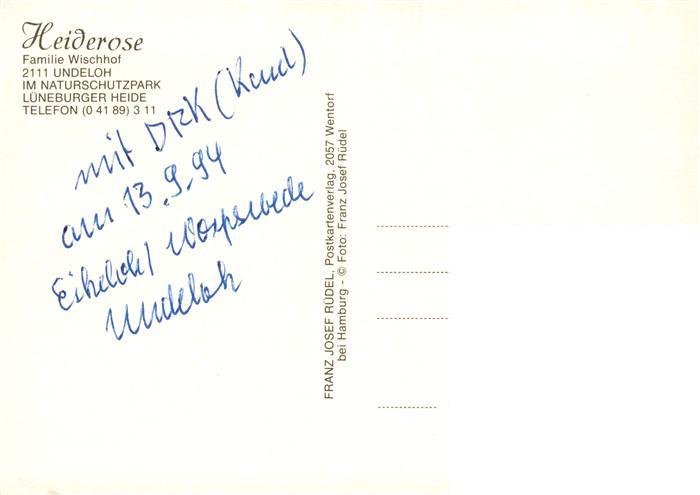 Heiderose
Familie Wischhof
2111 UNDELOH
IM NATURSCHUTZPARK
LÜNEBURGER HEIDE
TELEFON (0 41 89) 3 11
mit DRK
am 13.9.94
Worpswede
Undeloh
FRANZ JOSEF RÜDEL, Postkartenverlag, 2057 Wentorf
bei Hamburg - © Foto: Franz Josef Rüdel